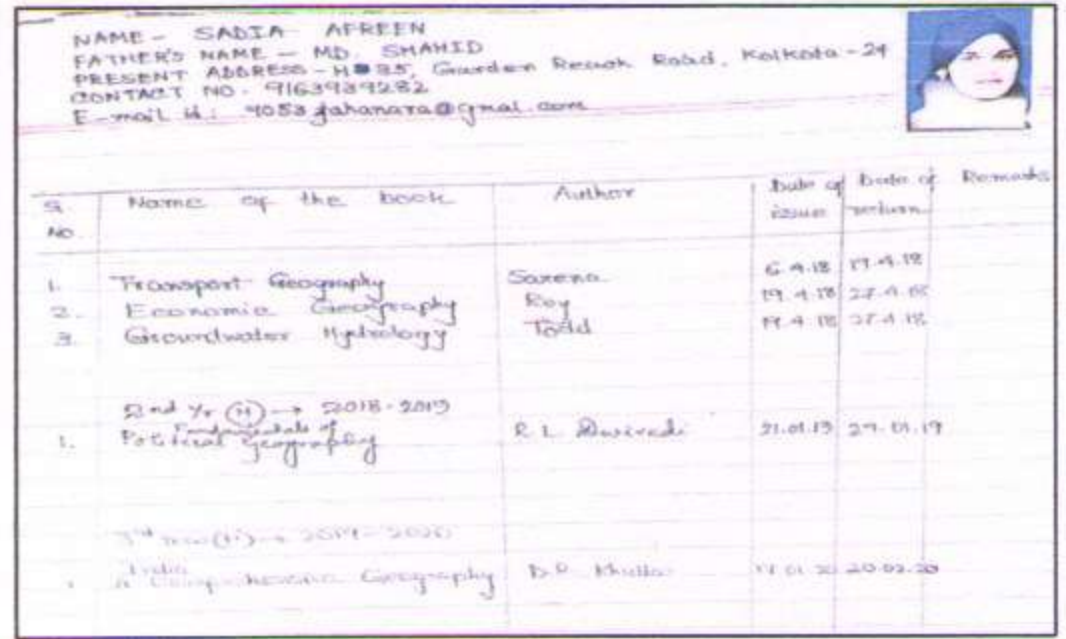 NAME - SADIA AFREEN
FATHER'S NAME - MD. SHAHID
PRESENT ADDRESS - H 35, Garden Reach Road, Kolkata - 24
CONTACT NO. 9163939282
E-mail id : 9053jahanara@gmal.com
S. Name of the book Author Date of Date of Remarks
No. issue return
1. Transport Geography Saxena 6.4.18 17.4.18
2. Economic Geography Roy 19.4.18 27.4.18
3. Groundwater Hydrology Todd 19.4.18 27.4.18
2nd Yr (H) → 2018-2019
Fundamentals of
1. Political Geography R.L. Dwivedi 21.01.19 29.01.19
3rd (H) → 2019-2020
India
A Comprehensive Geography D.R. Khullar 17.01.20 20.02.20